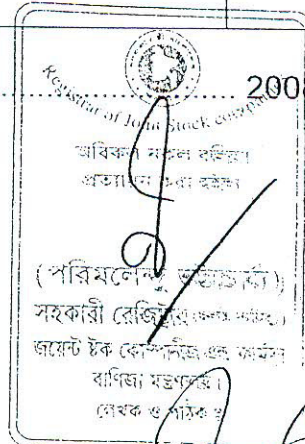 Registrar of Joint Stock
2008
অবিকল নকল বলিয়া
প্রত্যায়ন করা হইল
(পরিমলেন্দু ভট্টাচার্য্য)
সহকারী রেজিষ্ট্রার
জয়েন্ট ষ্টক কোম্পানীজ এন্ড ফার্মস
বাণিজ্য মন্ত্রণালয়।
লেখক ও পাঠক ঃ